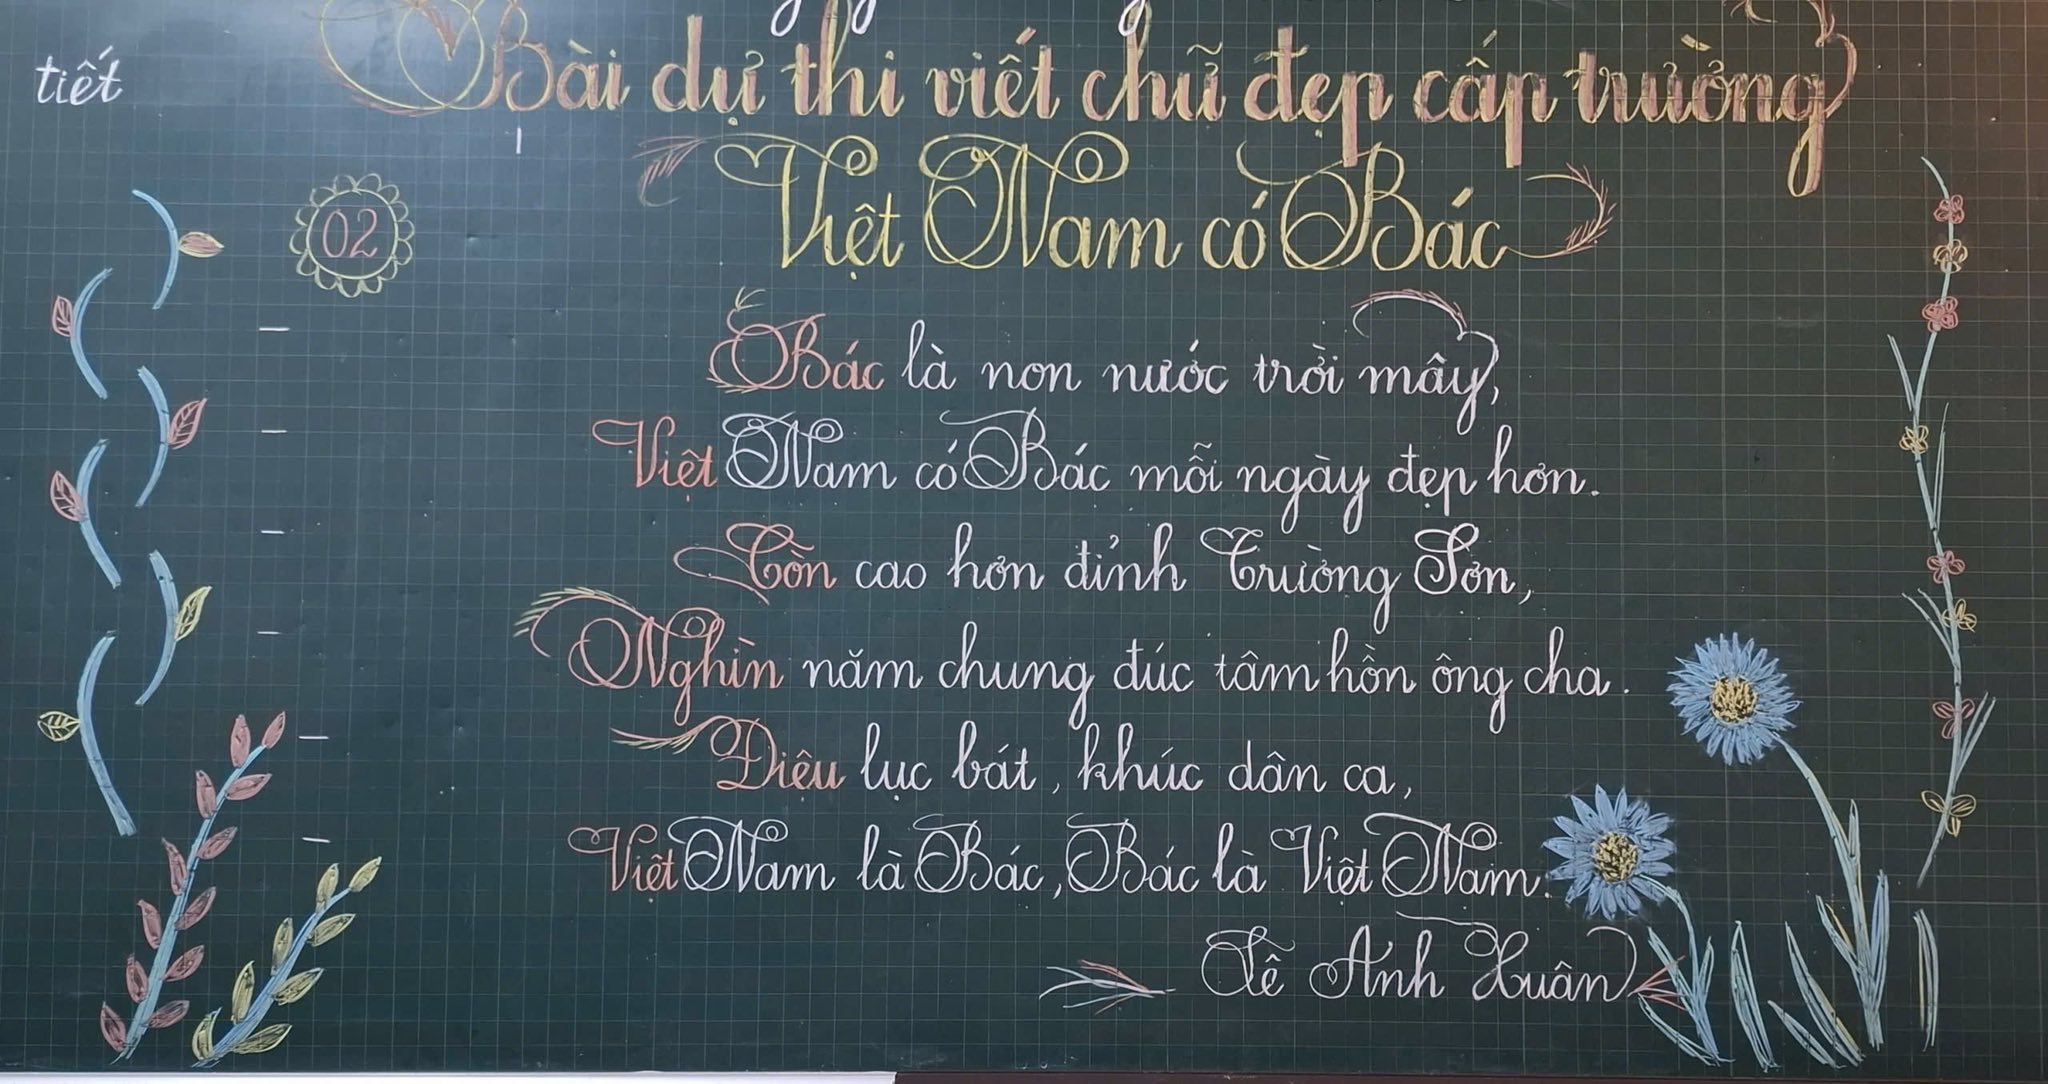 tiết
Bài dự thi viết chữ đẹp cấp trường
Việt Nam có Bác
02
Bác là non nước trời mây,
Việt Nam có Bác mỗi ngày đẹp hơn.
Còn cao hơn đỉnh Trường Sơn,
Nghìn năm chung đúc tâm hồn ông cha.
Điệu lục bát, khúc dân ca,
Việt Nam là Bác, Bác là Việt Nam.
Lê Anh Xuân